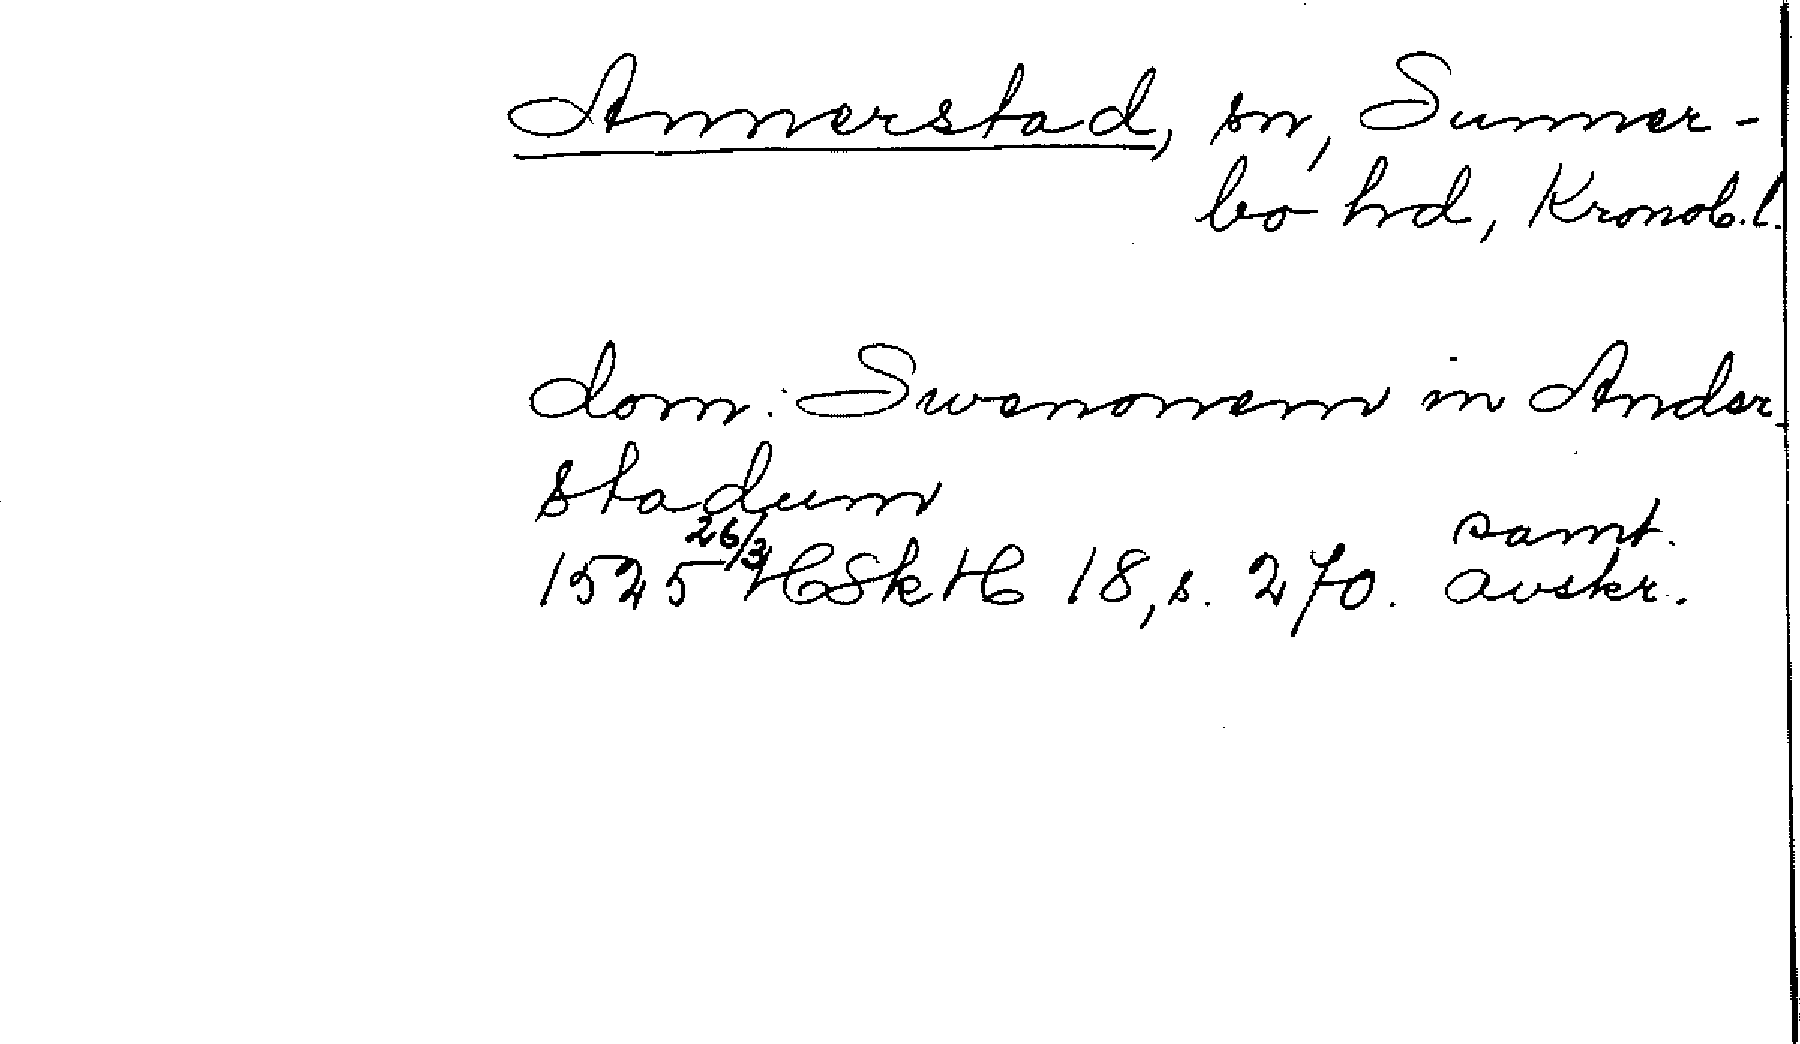 Annerstad, sn, Sunner-
bo hd, Kronob.l.
dom: Swenonem in Ander-
stadum
1525 26/3 HSkH 18, s. 270. samt. avskr.